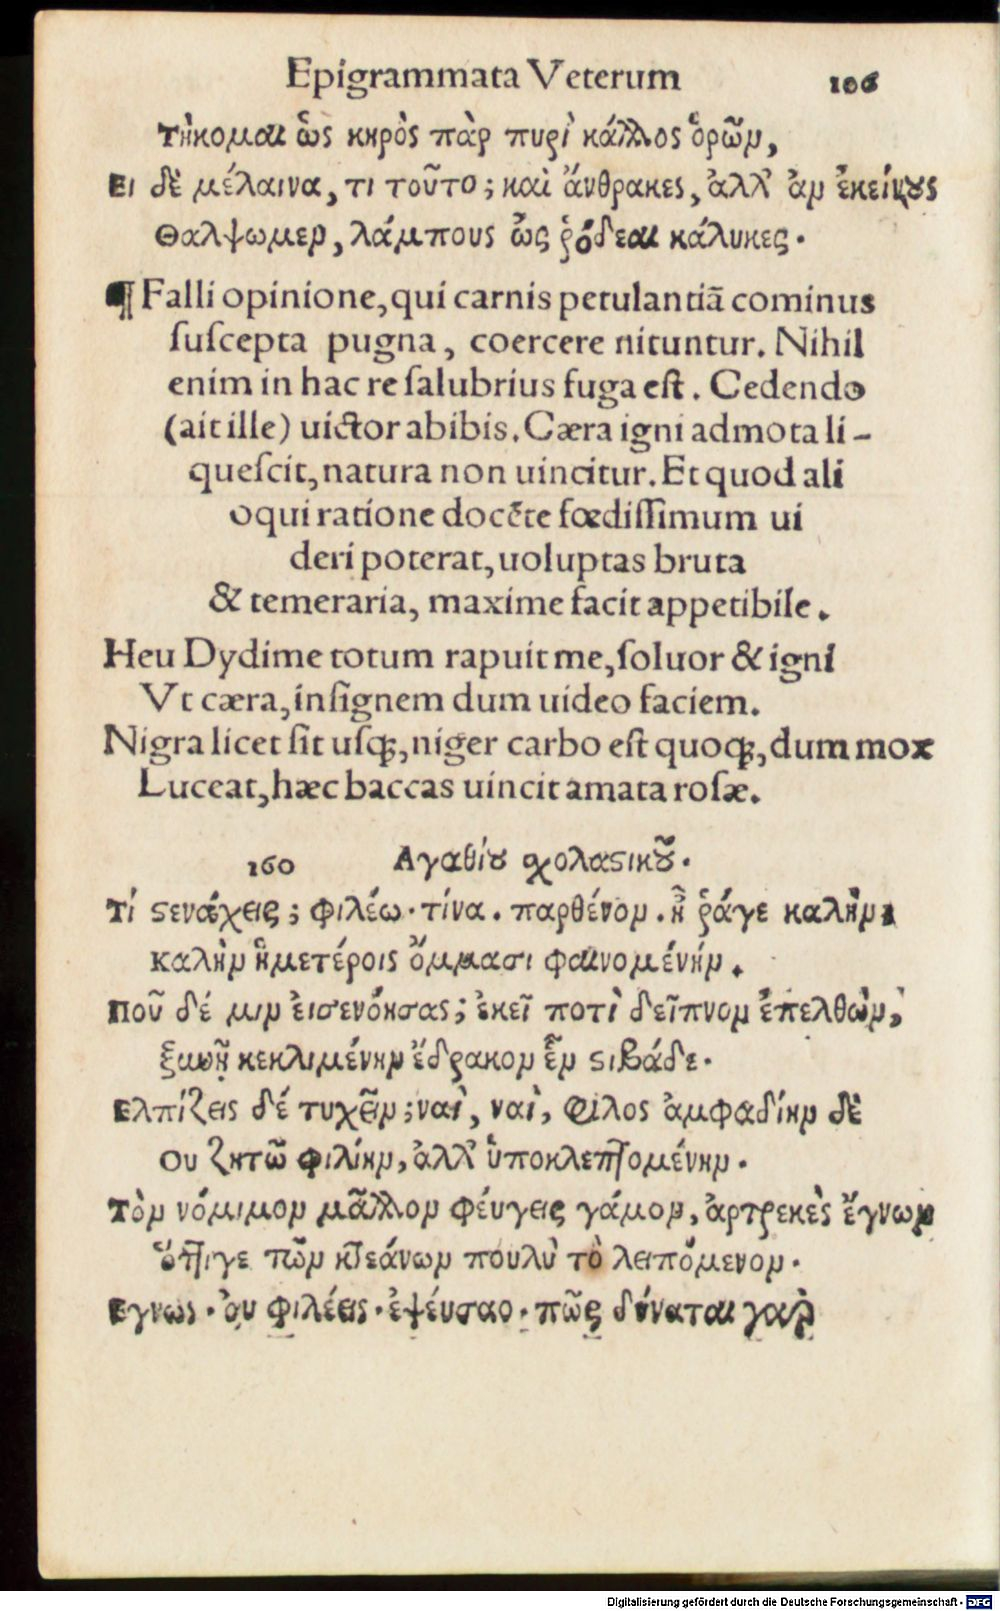 Epigrammata Veterum 106
Τήκομαι ὡς κηρὸς πὰρ πυρὶ κάλλος ὁρῶν,
Ει δὲ μέλαινα, τι τοῦτο; καὶ ἄνθρακες, ἀλλ' ἂν ἐκείνους
Θαλψωμεν, λάμπους ὡς ῥόδεαι κάλυκες.
¶ Falli opinione, qui carnis petulantiā cominus
ſuſcepta pugna, coercere nituntur. Nihil
enim in hac re ſalubrius fuga eſt. Cedendo
(ait ille) uictor abibis. Cæra igni admota li-
queſcit, natura non uincitur. Et quod ali
oqui ratione docēte fœdiſſimum ui
deri poterat, uoluptas bruta
& temeraria, maxime facit appetibile.
Heu Dydime totum rapuit me, ſoluor & igni
Vt cæra, inſignem dum uideo faciem.
Nigra licet ſit uſq;, niger carbo eſt quoq;, dum mox
Luceat, hæc baccas uincit amata roſæ.
160 Αγαθίου σχολαστικοῦ.
Τί στενάχεις; φιλέω. τίνα. παρθένον. ἦ ῥάγε καλήν
Καλὴν ἡμετέροις ὄμμασι φαινομένην.
Ποῦ δέ μιν εἰσενόησας; ἐκεῖ ποτὶ δεῖπνον ἐπελθὼν,
ξυνῇ κεκλιμένην ἔδρακον ἐν στιβάδι.
Ελπίζεις δέ τυχεῖν; ναὶ, ναὶ, φίλος ἀμφαδίην δὲ
Ου ζητῶ φιλίην, ἀλλ' ὑποκλεπτομένην.
Τὸν νόμιμον μᾶλλον φέυγεις γάμον, ἀρτρεκὲς ἔγνων
ὅττιγε τῶν κτεάνων πουλὺ τὸ λειπόμενον.
Εγνως. ὀυ φιλέεις. ἐψέυσαο. πῶς δύναται γὰρ
Digitalisierung gefördert durch die Deutsche Forschungsgemeinschaft - DFG